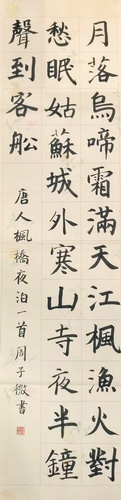 月落烏啼霜滿天江楓漁火對
愁眠姑蘇城外寒山寺夜半鐘
聲到客船
唐人楓橋夜泊一首周子微書